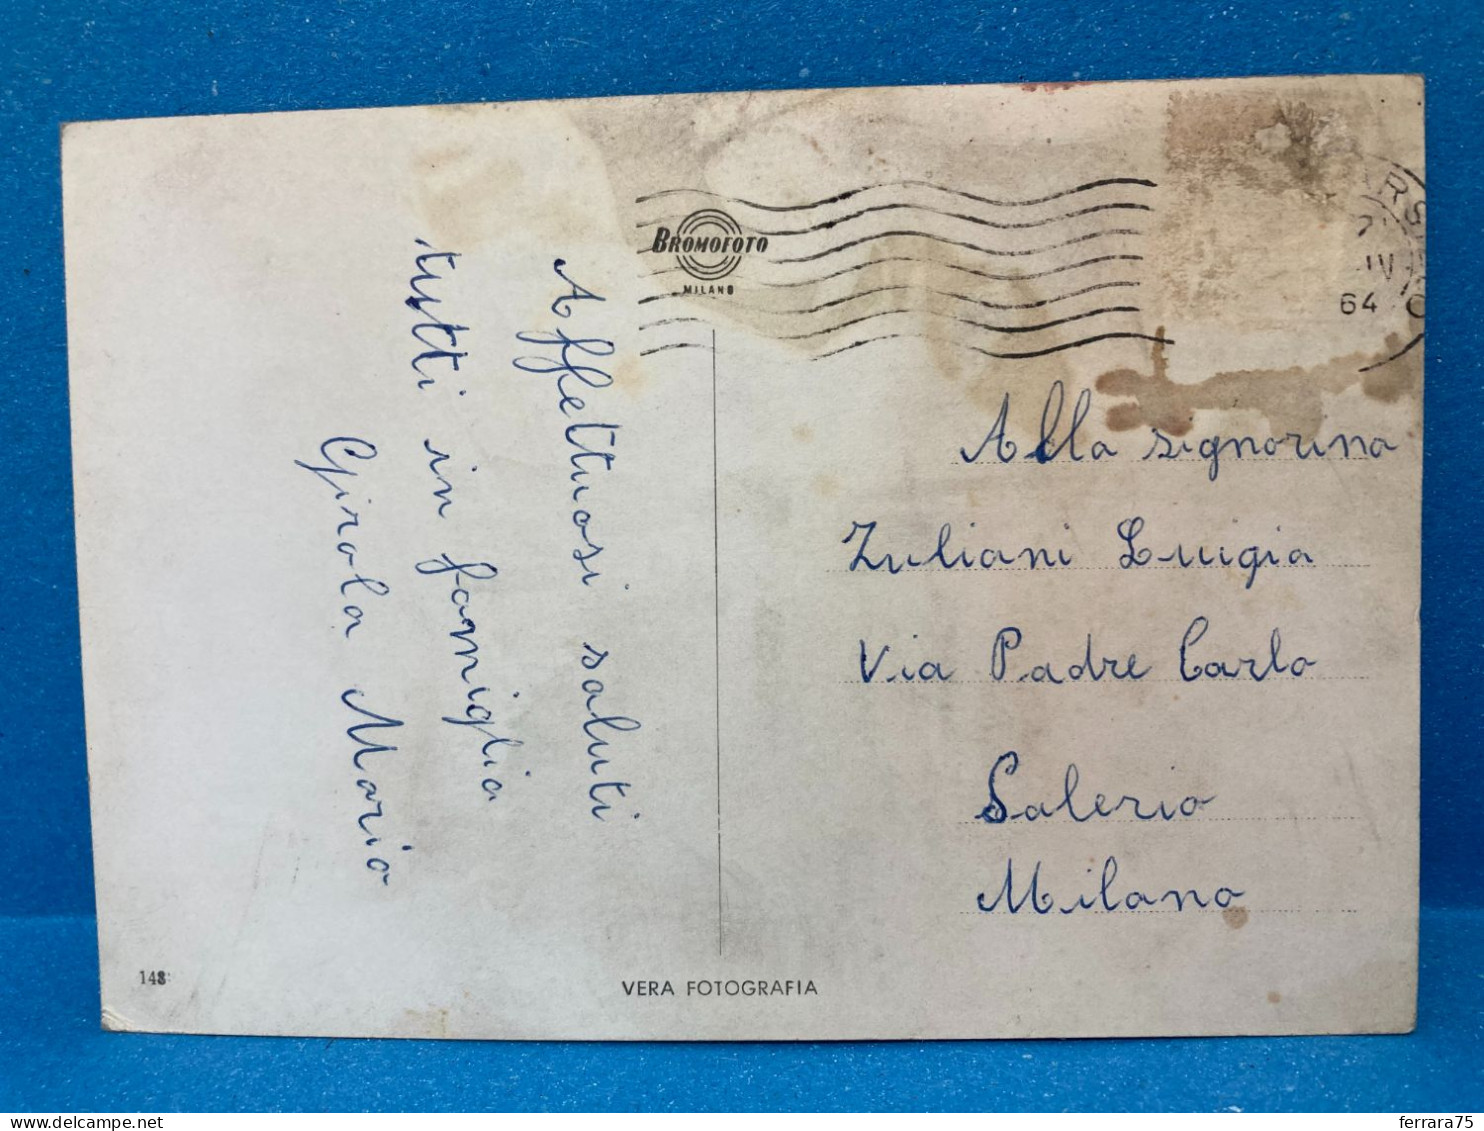 Affettuosi saluti
tutti in famiglia
Girola Maria
BROMOFOTO
MILANO
IV
64
Alla signorina
Zuliani Luigia
Via Padre Carlo
Salerio
Milano
148
VERA FOTOGRAFIA
ferrara75